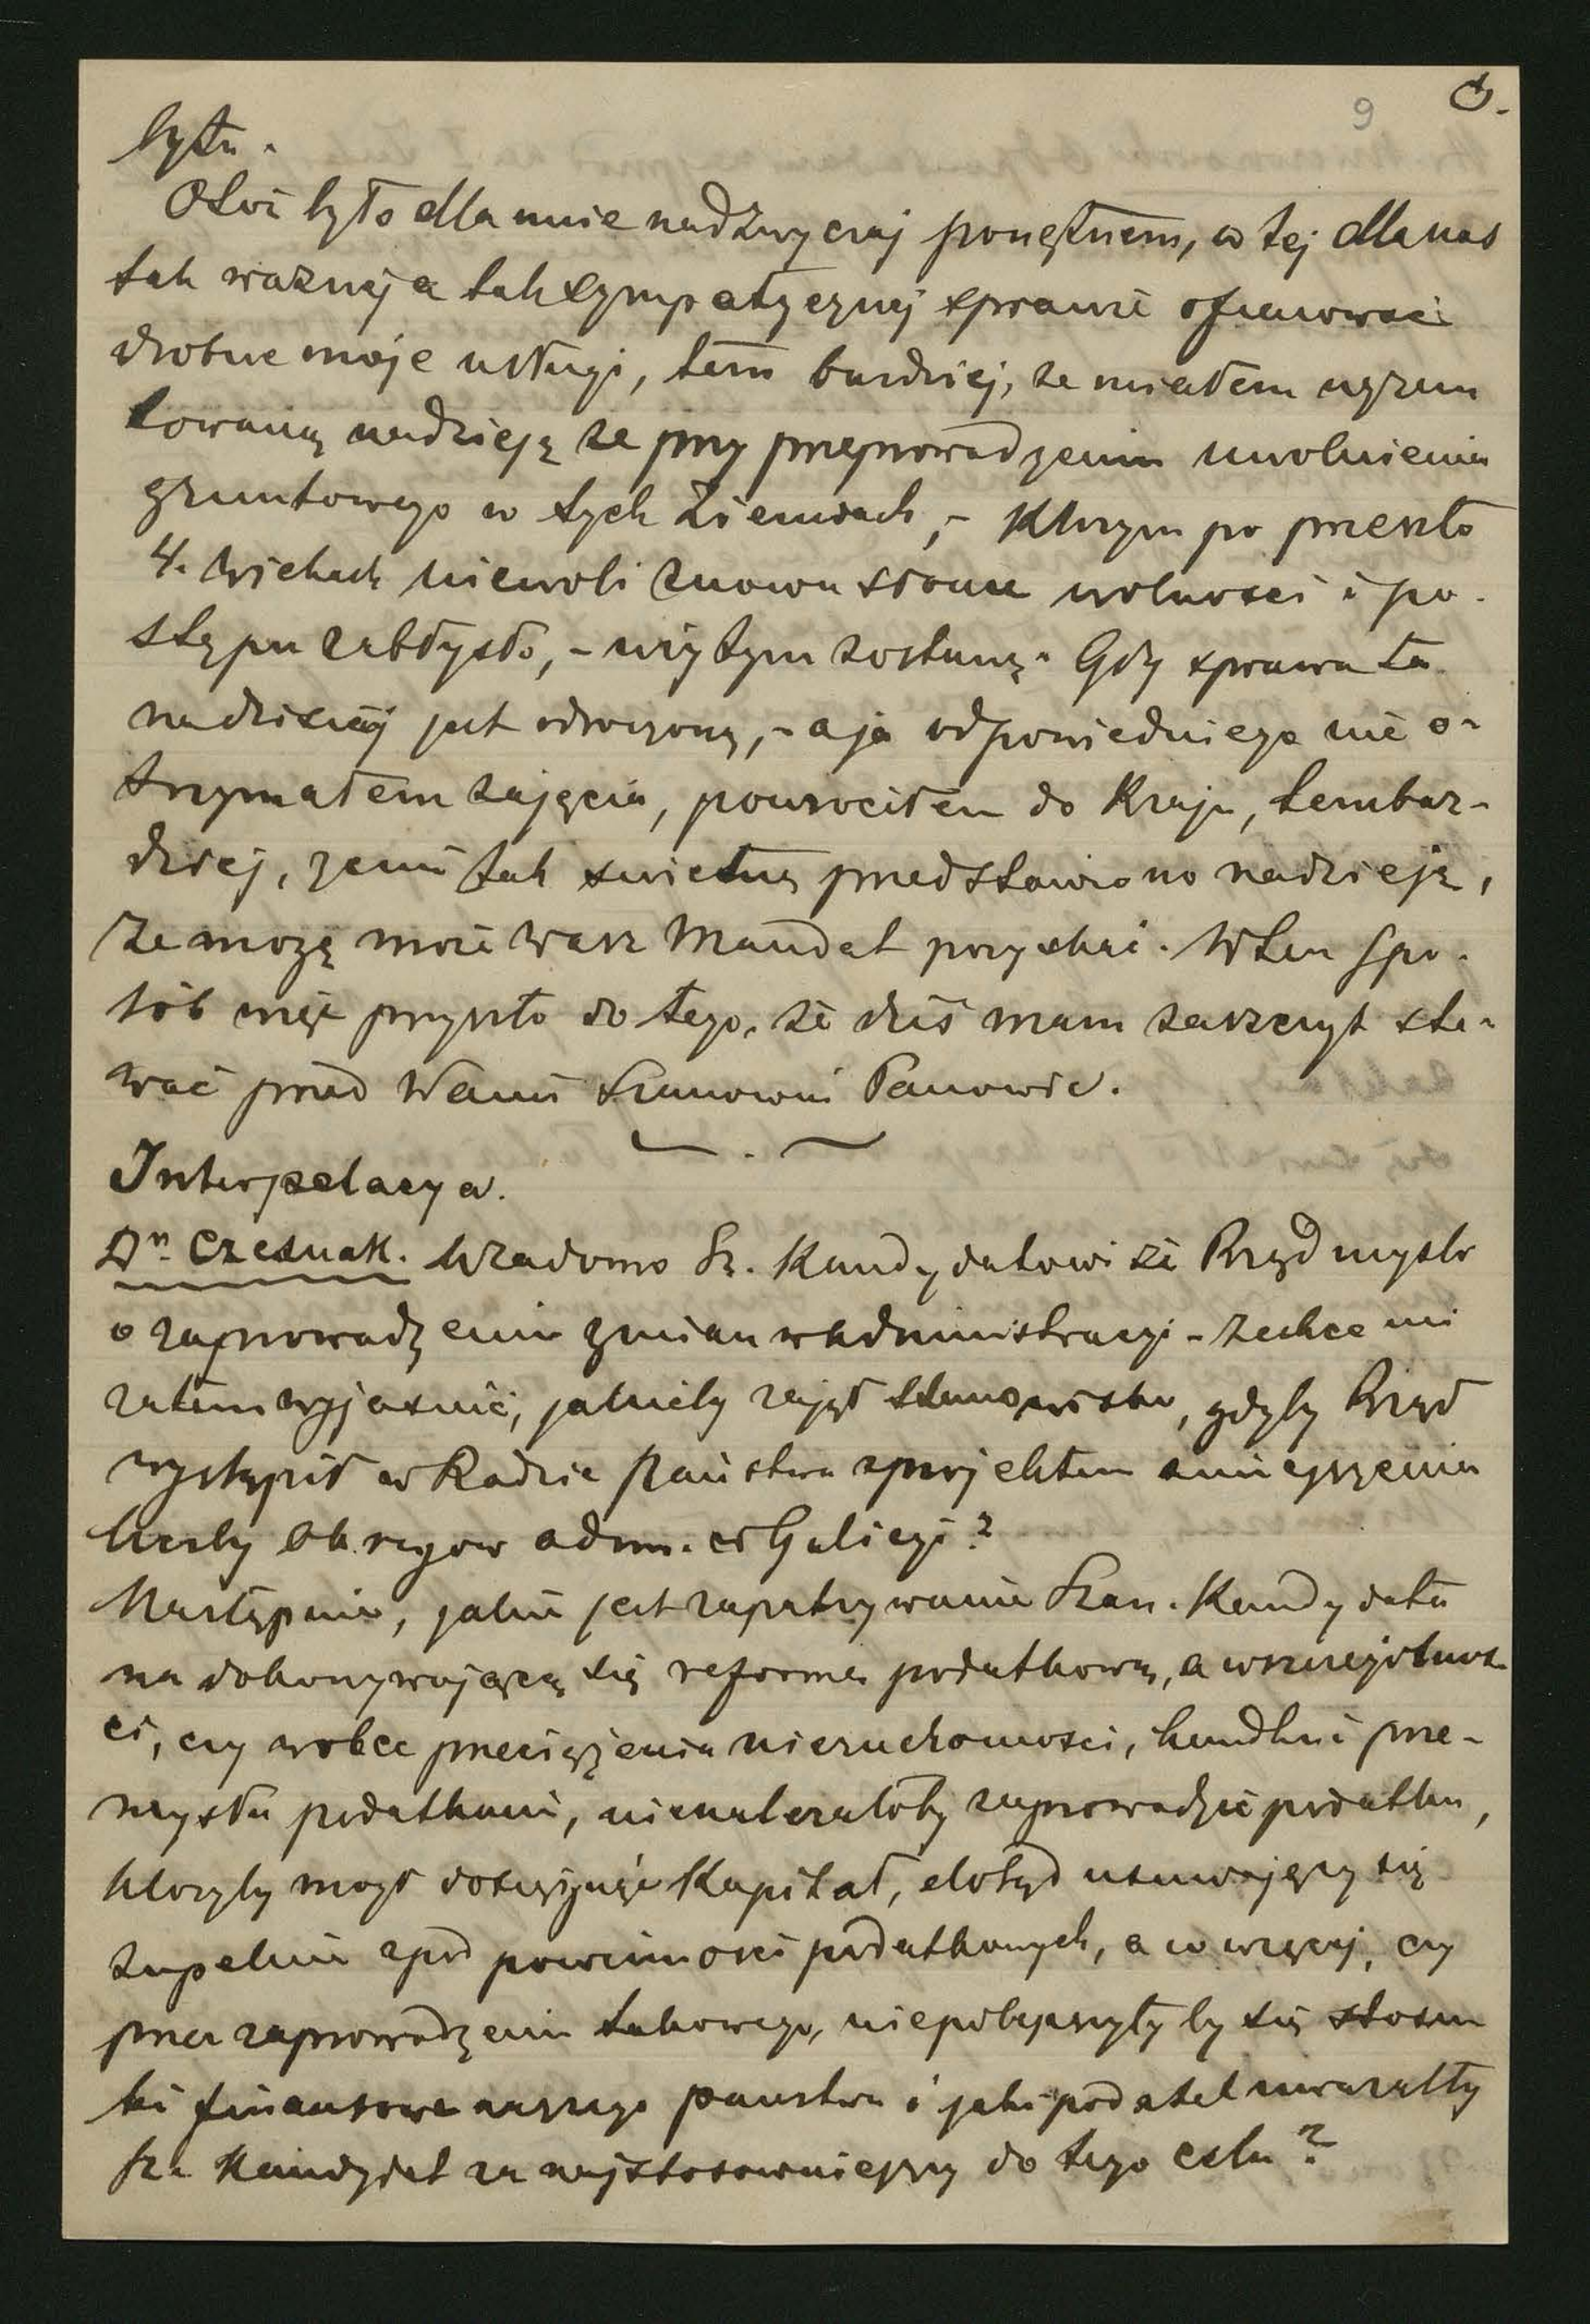 9
bytu.
Otóż było dla mnie nadzwyczaj ponętnem, w tej dla nas
tak ważnej a tak sympatycznej sprawie ofiarować
drobne moje usługi, tem bardziej, że miałem ugrun
towaną nadzieję że przy przeprowadzeniu uwolnienia
gruntowego w tych Ziemiach, – którym po przeszło
4. wiekach niewoli znowu słońce wolności i po-
stępu zabłysło, – użytym zostanę. Gdy sprawa ta
na dzisiaj jest odroczoną, – a ja odpowiedniego nie o-
trzymałem zajęcia, powrociłem do Kraju, tembar-
dziej, żemi tak swietną przedstawiono nadzieję,
że mogę może Wasz Mandat pozyskać. W ten spo-
sób więc przyszło do tego, że dziś mam zaszczyt sta-
wać przed Wami Szanowni Panowie.
Interpelacya.
Dr. Czesnak. Wiadomo Sz. Kandydatowi że Rząd mysli
o zaprowadzeniu zmian w Administracyi – zechce mi
zatem wyjasnić, jakieby zajął stanowisko, gdyby Rząd
wystąpił w Radzie Państwa z projektem zmniejszenia
liczby okręgow adm. w Galicyi?
Następnie, jakie jest zapatrywanie Szan. Kandydata
na dokonywającą się reformę podatkową, a w szczegolnos-
ci, czy wobec przeciążenia nieruchomosci, handlu i prze-
mysłu podatkami, nienależałoby zaprowadzić podatku,
ktoryby mogł dosięgnąć Kapitał, dotąd usuwający się
zupelnie zpod powinnosci podatkowych, a co więcej, czy
przez zaprowadzenie takowego, niepolepszyłyby się stosun
ki finansowe naszego panstwa i jaki podatek uwazałby
Sz. Kandydat za najstosowniejszy do tego celu?